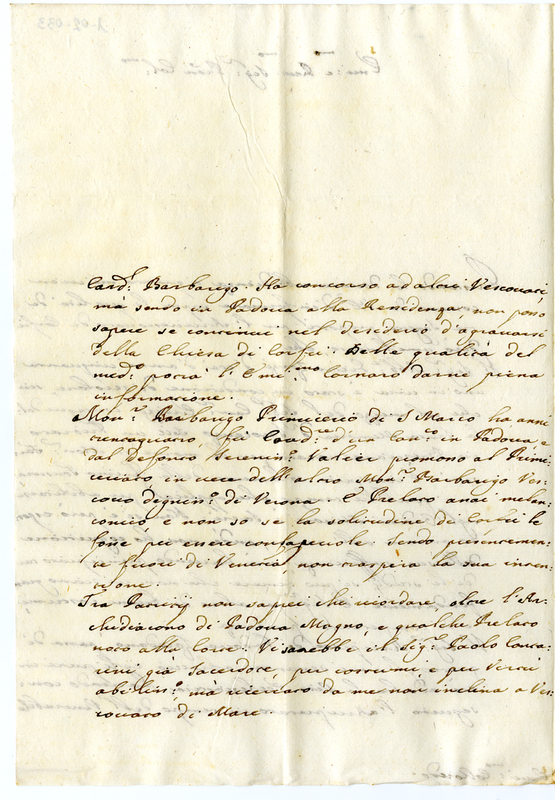 Card.l Barbarigo. Ha concorso ad altri Vescovati,
mà sendo in Padova alla Residenza, non posso
sapere se continui nel desiderio d'aggravarsi
della Chiesa di Corfù. Delle qualità del
med.o potrà l'Emi:mo Cornaro darne piena
informazione.
Mon.r Barbarigo Primicerio di S. Marco ha anni
trentaquatro, fù Coad.re d'un Can.co in Padova e
dal Defonto Sereniss.o Valier promosso al Primi-
ceriato in vece dell'altro Mon.r Barbarigo Ves-
covo degniss.o di Verona. È Prelato assai melan-
conico, e non so se la solitudine di Corfù le
fosse per essere confacevole. Sendo presentemen-
te fuori di Venezia non traspira la sua inten-
zione.
Tra Patritij non saprei che ricordare, oltre l'Ar-
chidiacono di Padova Magno, e qualche Prelato
noto alla Corte. Vi sarebbe il Sig.r Paolo
già Sacerdote, per costumi, e per virtù
abiliss.o, mà ricercato da me non inclina a Ves-
covato di Mare.